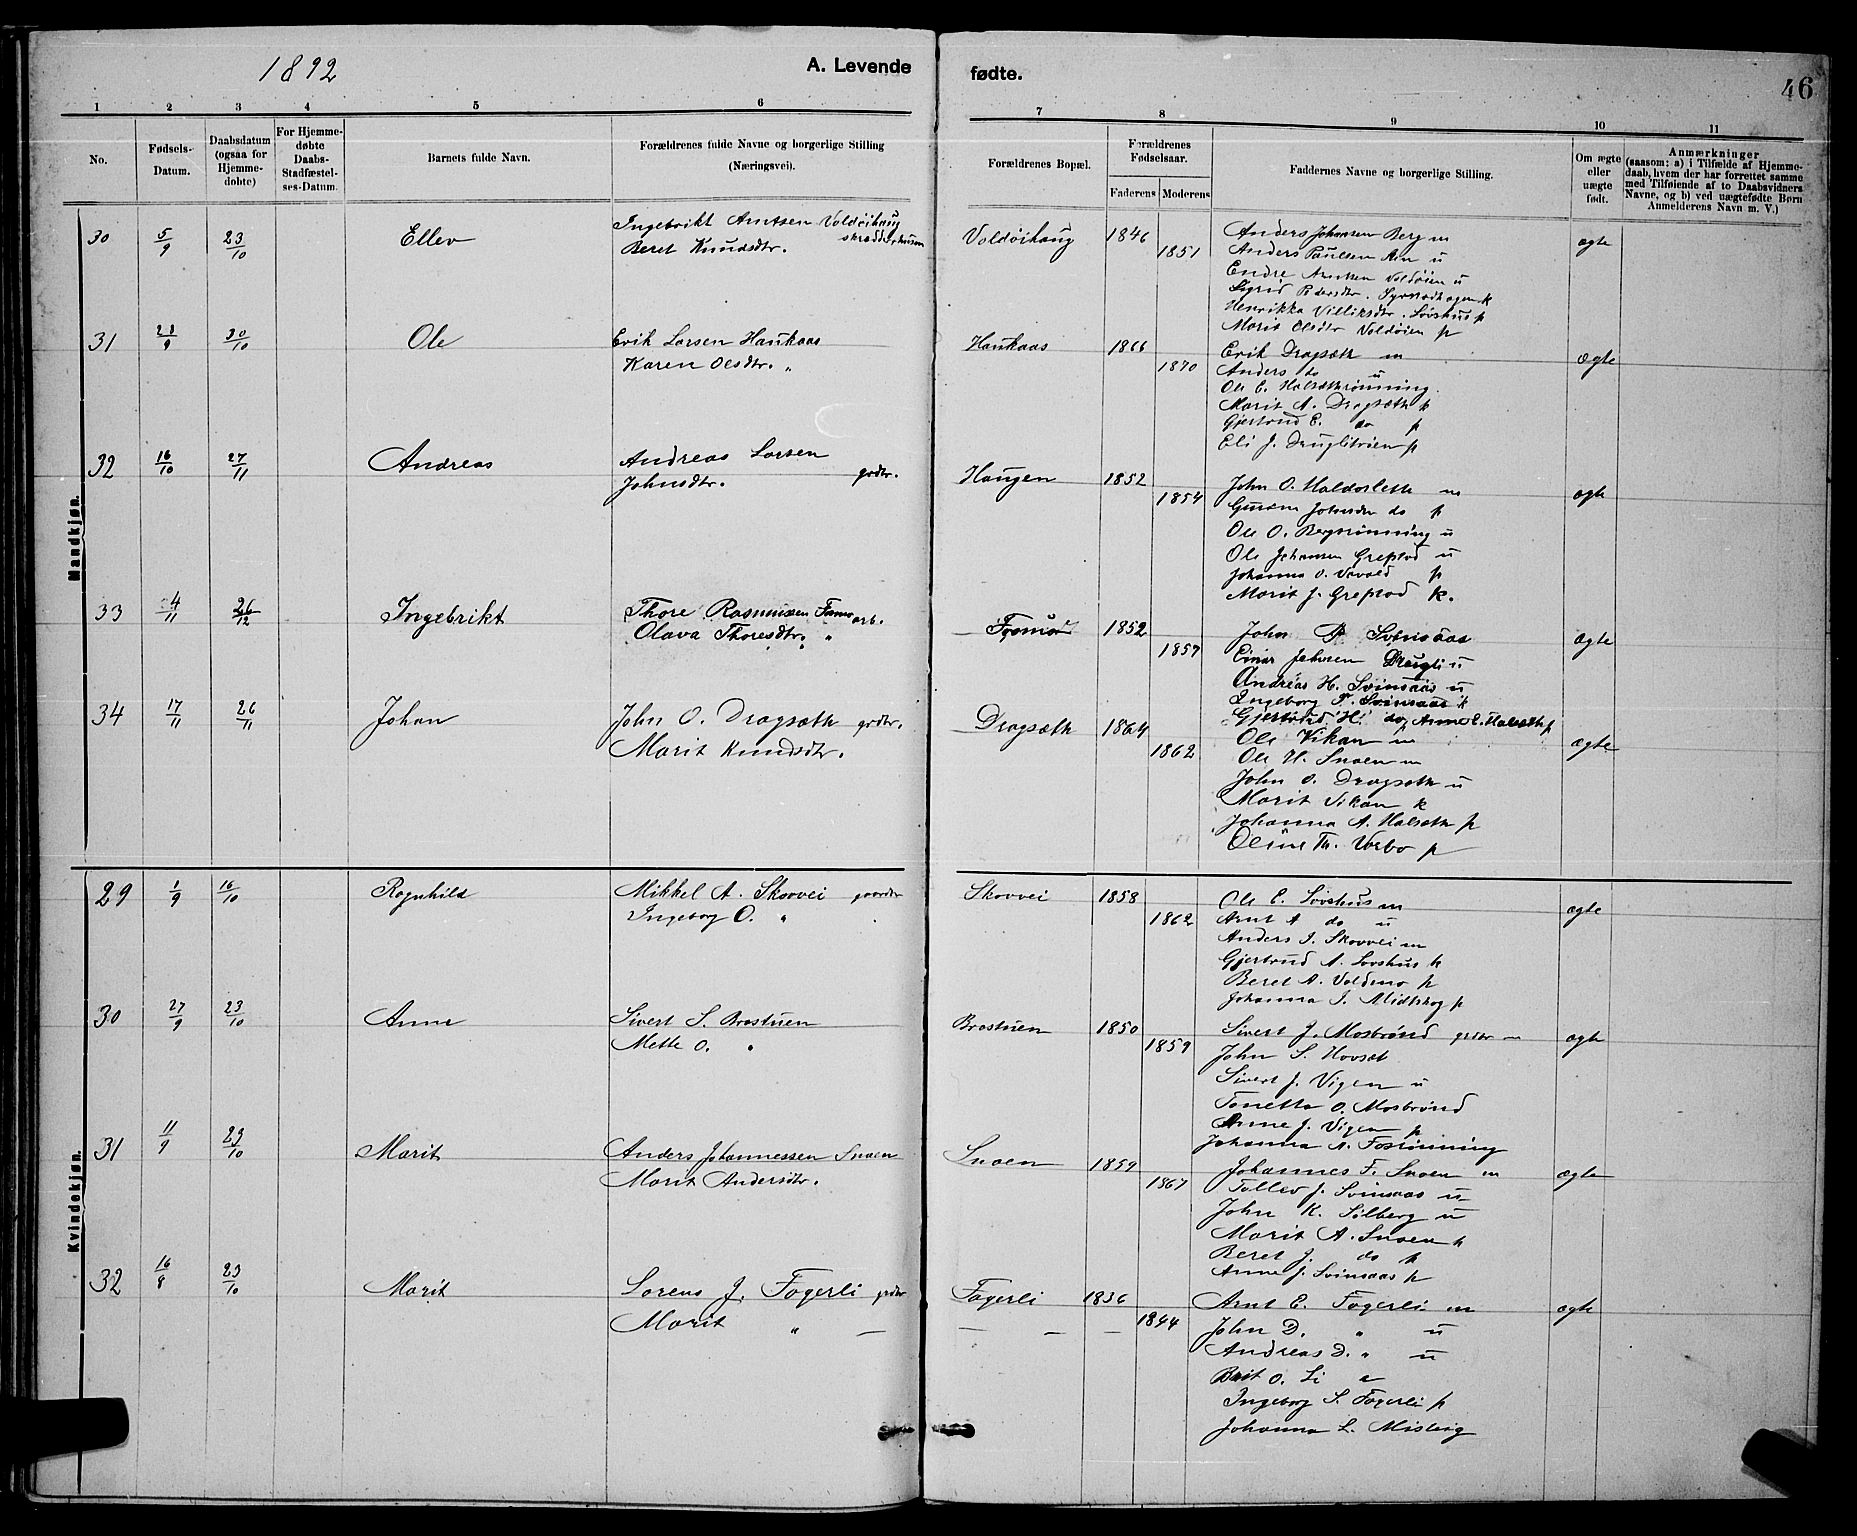 1892
A. Levende fødte.
46
1 2 3 4 5 6 7 8 9 10 11
No.
Fødsels-Datum.
Daabsdatum (ogsaa for Hjemme-døbte)
For Hjemme-døbte Daabs-Stadfæstel-ses-Datum.
Barnets fulde Navn.
Forældrenes fulde Navne og borgerlige Stilling (Næringsvei).
Forældrenes Bopæl.
Forældrenes Fødselsaar.
Faderens Moderens
Faddernes Navne og borgerlige Stilling.
Om ægte eller uægte født.
Anmærkninger
(saasom: a) i Tilfælde af Hjemme-daab, hvem der har forrettet samme med Tilføiende af to Daabsvidners Navne, og b) ved uægtefødte Børn Anmelderens Navn m. V.)
Mandkjøn.
30 5/9 23/10 Ellev
Ingebrikt Arntsen Voldøihaug
Beret Knudsdtr.
Voldøihaug 1846 1851
Anders Johnsen Berg m
Anders Paulsen Arn u
Endre Arntsen Voldøien u
Sigrid Pedersdtr. k
Henrikka Villiksdtr. Løvshus p
Marit Olsdtr Voldøien p
ægte
31 23/9 30/10 Ole
Erik Larsen Haukaas
Karen Olsdtr. "
Haukaas 1866 1870
Erik Dragsæth m
Anders do u
Ole E. Halsethrønning
Marit A. Dragsæth k
Gjertrud E. do p
Eli J. Druglitrøen p
ægte
32 16/10 27/11 Andreas
Andreas Larsen
Johnsdtr. grdbr.
Haugen 1852 1854
John O. Haldorsleth m
Johnsdtr do p
Ole O. Bergrønning u
Ole Johansen Grefstad u
Johanna O. Vavold p
Marit J. Grefstad k.
ægte
33 4/11 26/12 Ingebrikt
Thore Rasmussen Fosmo arb.
Olava Thoresdtr. "
Fosmo 1852 1857
John P Svinsaas
Einar Johnsen Drugli u
Andreas H. Svinsaas u
Ingeborg P. Svinsaas k
Gjertrud H. do, Anne E. Halseth p
ægte
34 17/11 26/11 Johan
John O. Dragsæth grdbr.
Marit Knudsdtr.
Dragsæth 1864 1862
Ole Vikan m
Ole H. Snoen m
John O. Dragseth u
Marit Vikan k
Johanna A. Halseth p
Oline Th. Vorbo p
ægte
Kvindekjøn.
29 1/9 16/10 Ragnhild
Mikkel A. Skorvei gaardbr
Ingeborg O. "
Skorvei 1858 1862
Ole E. Løvshus m
Arnt A do u
Anders J. Skorvei m
Gjertrud A. Løvshus k
Beret A. Voldmo p
Johanna J. Midtskog p
ægte
30 27/9 23/10 Anne
Sivert S. Brostuen
Mette O. "
Brostuen 1850 1859
Sivert J. Mosbrønd grdbr m
John S. Hovset
Sivert J. Vigen u
Tonetta O. Mosbrønd
Anne J. Vigen p
Johanna A. Fosrønning
ægte
31 11/9 23/10 Marit
Anders Johannessen Snoen
Marit Andersdtr.
Snoen 1859 1867
Johannes F. Snoen m
Tollev J. Svinsaas u
John K. Silberg u
Marit A. Snoen k
Beret J. do p
Anne J. Svinsaas p
ægte
32 16/8 23/10 Marit
Lorens J. Fagerli grdbr
Marit " —
Fagerli 1836 1844
— — —
Arnt E. Fagerli m
John D. " u
Andreas D. " u
Brit O. Li
Ingeborg S. Fagerli p
Johanna L. Misberg
ægte